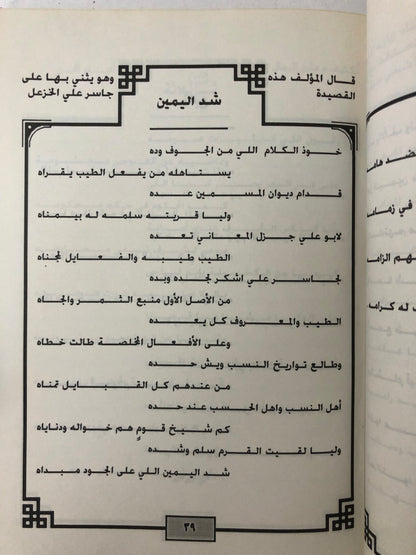 قال المؤلف هذه القصيدة
وهو يثني بها على جاسر علي الخزعل
شد اليمين
خوذ الكلام اللي من الجوف وده
يستاهله من يفعل الطيب يقراه
قدام ديوان المسمين عده
وليا قريته سلمه له بيمناه
لابو علي جزل المعاني تعده
الطيب طيبه والفعايل تجناه
لجاسر علي اشكر لجده وبده
من الأصل الأول منبع الثمر والجاه
الطيب والمعروف كل يعده
وعلى الأفعال المخلصة طالت خطاه
وطالع تواريخ النسب ويش حده
من عندهم كل القبايل تمناه
أهل النسب واهل الحسب عند حده
كم شيخ قومٍ هم خواله ودناياه
وليا لقيت القرم سلم وشده
شد اليمين اللي على الجود مبداه
٣٩
في زمام
هم الزامه
له كرامه